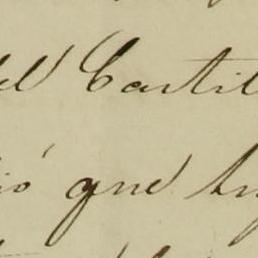 el Castil
ió que hu